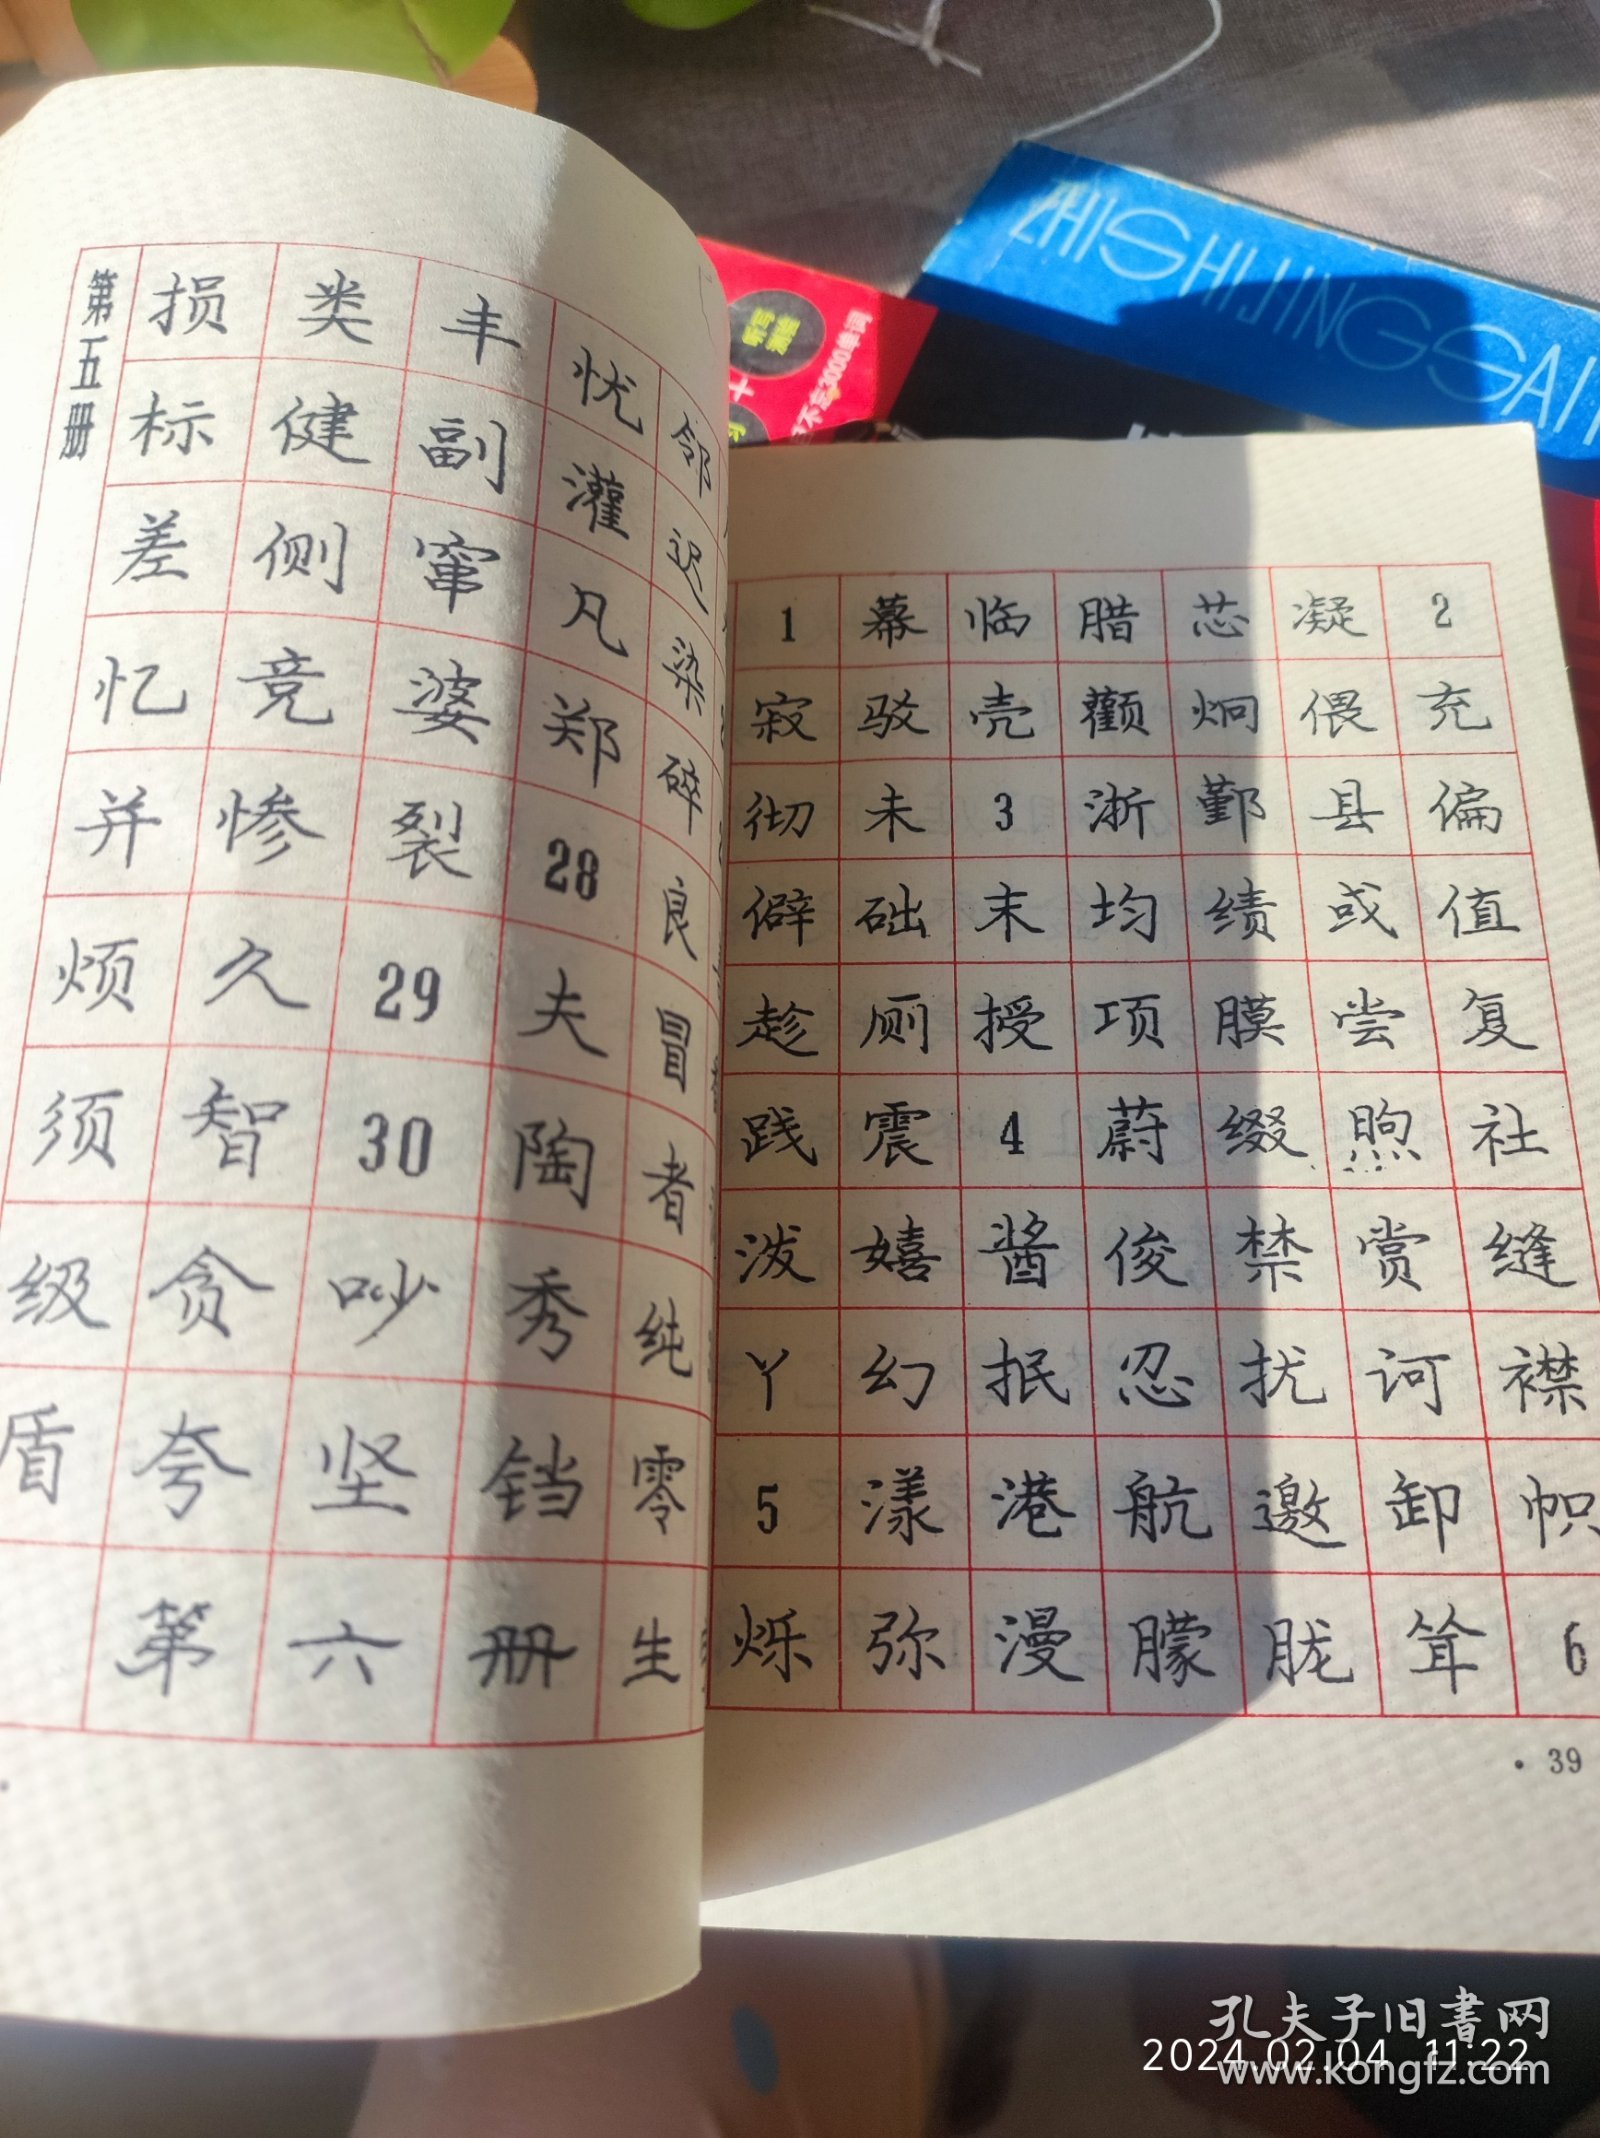 第五册
损 类 丰 忧 邻
标 健 副 灌 迟
差 侧 窜 凡 染
忆 竞 婆 郑 碎
并 惨 裂 28 良
烦 久 29 夫 冒
须 智 30 陶 者
级 贪 吵 秀 纯
盾 夸 坚 铛 零
第 六 册 生
1 幕 临 腊 芯 凝 2
寂 驳 壳 颧 炯 偎 充
彻 未 3 浙 鄞 县 偏
僻 础 末 均 绩 或 值
趁 厕 授 项 膜 尝 复
践 震 4 蔚 缀 煦 社
泼 嬉 酱 俊 禁 赏 缝
丫 幻 抿 忍 扰 诃 襟
5 漾 港 航 邀 卸 帜
烁 弥 漫 朦 胧 耸 6
· 39
ZHISHIJINGSAI
3000单词
孔夫子旧書网
2024.02.04 11:22
www.kongfz.com